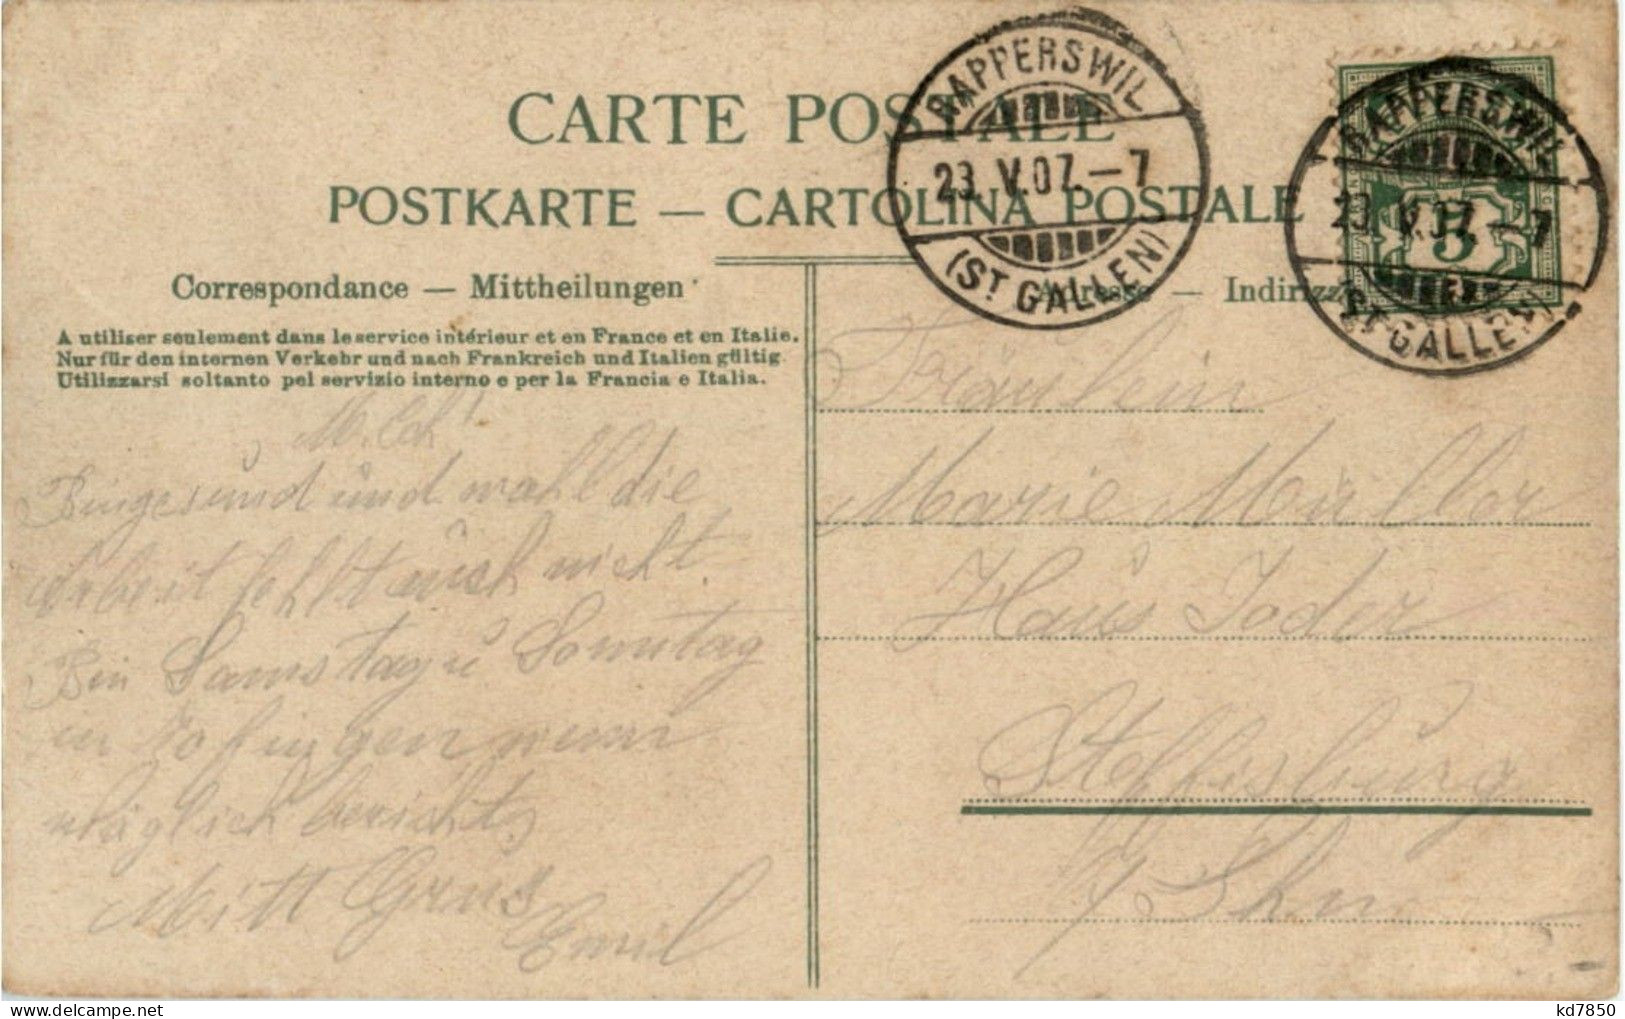 CARTE POSTALE
POSTKARTE — CARTOLINA POSTALE
RAPPERSWIL
23. V.07.–7
(ST GALLEN)
RAPPERSWIL
23. V.07.–7
(ST GALLEN)
5
Correspondance — Mittheilungen
Adresse — Indirizzo
A utiliser seulement dans le service intérieur et en France et en Italie.
Nur für den internen Verkehr und nach Frankreich und Italien gültig
Utilizzarsi soltanto pel servizio interno e per la Francia e Italia.
Bin gesund und wohl die
Arbeit fehlt auch nicht.
Bin Samstag u Sonntag
in Zofingen wenn
möglich berichts
Mitt Grus
Emil
Fräulein
Marie Müller
Haus Joder
Steffisburg
b/ Thun
kd7850